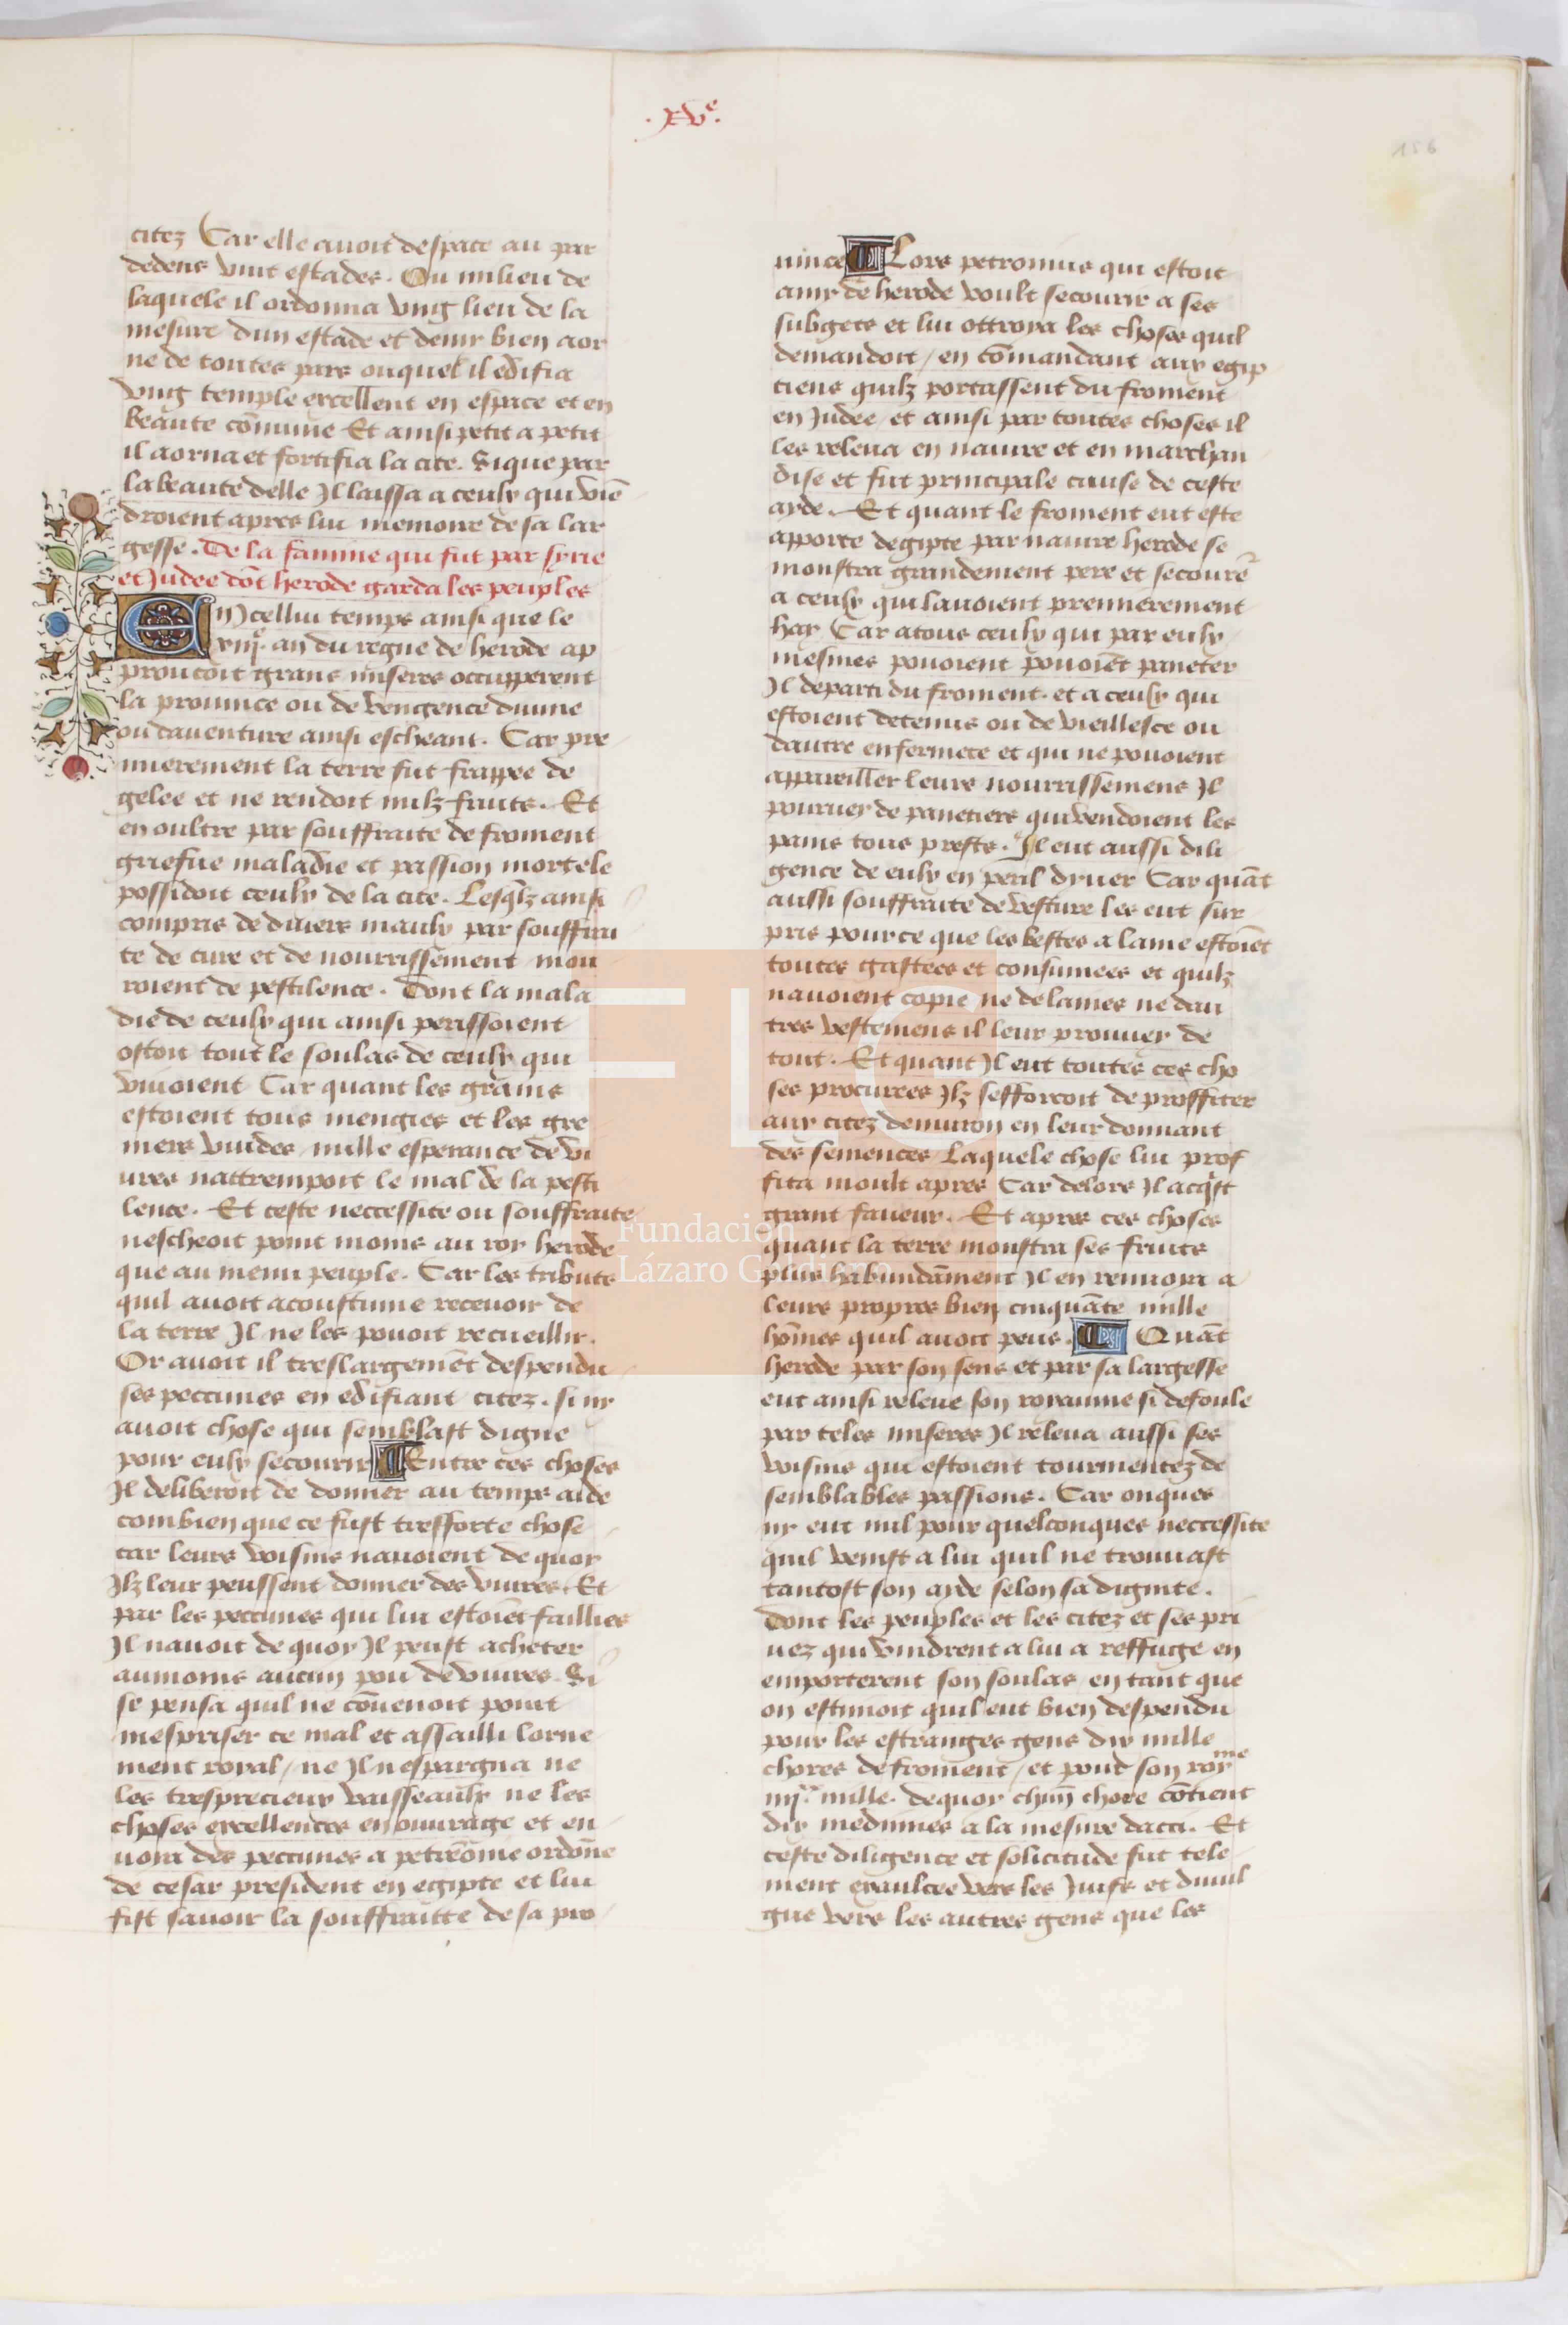 .xve.
156
citez Car elle auoit despace au par
dedens vint estades. Ou milieu de
laquele il ordonna vng lieu de la
mesure dun estade et demy bien aor
ne de toutes pars ouquel il edifia
vng temple excellent en espace et en
beaute cōmune Et ainsi petit a petit
il aorna et fortifia la cite. Si que par
la beaute delle Il laissa a ceulx qui viē
droient apres lui memoire de sa lar
gesse. De la famine qui fut par syrie
et Iudee dōt herode garda les peuples
En cellui temps ainsi que le
xiije. an du regne de herode ap
prouçoit grans miseres occupperent
la prouince ou de vengence diuine
ou dauenture ainsi escheant. Car pre
mierement la terre fut frappee de
gelee et ne rendoit nulz fruits. Et
en oultre par souffraite de froment
griefue maladie et passion mortele
possidoit ceulx de la cite. Lesqlz ainsi
compris de diuers maulx par souffrai
te de cure et de nourrissement mou
roient de pestilence. Dont la mala
die de ceulx qui ainsi perissoient
ostoit tout le soulas de ceulx qui
viuoient Car quant les grains
estoient tous mengies et les gre
niers vuides nulle esperance de vi
ures nattrempoit le mal de la pesti
lence. Et ceste neccessite ou souffraite
nescheoit point moins au roy herode
que au menu peuple. Car les tributs
quil auoit acoustume receuoir de
la terre Il ne les pouoit recueillir.
Or auoit il treslargemēt despendu
ses peccunes en edifiant citez. si ny
auoit chose qui semblast digne
pour eulx secourir Entre ces choses
Il deliberoit de donner au temps aide
combien que ce fust tresforte chose
car leurs voisins nauoient de quoy
Ilz leur peussent donner des viures. Et
par les peccunes qui lui estoiēt faillies
Il nauoit de quoy Il peust acheter
aumoins aucun pou de viures. Si
se pensa quil ne cōuenoit point
mespriser ce mal et assailli lorne
ment royal / ne Il nespargna ne
les tresprecieux vaisseaulx ne les
choses excellentes en ouurage et en
uoia des peccunes a petrōnie ordōne
de cesar president en egipte et lui
fist sauoir la souffraitte de sa pro
uince Lors petronius qui estoit
amy de herode voult secourir a ses
subgets et lui ottroya les choses quil
demandoit / en cōmandant aux egip
tiens quilz portassent du froment
en Iudee et ainsi par toutes choses il
les releua en nauire et en marchan
dise et fut principale cause de ceste
ayde. Et quant le froment eut este
apporte degipte par nauire herode se
monstra grandement pere et secoure
a ceulx qui lauoient premierement
hay Car a tous ceulx qui par eulx
mesmes pouoient pouoiēt paneter
Il departi du froment. et a ceulx qui
estoient detenus ou de vieillesce ou
dautre enfermete et qui ne pouoient
appareiller leurs nourrissemens Il
pourvey de panetiers qui vendoient les
pains tous prests. Il eut aussi dili
gence de eulx en peril dyuer Car quāt
aussi souffraite de vesture les eut sur
pris pource que les bestes a laine estoiēt
toutes gastees et consumees et quilz
nauoient copie ne de laines ne dau
tres vestemens il leur prouuey de
tout. Et quant Il eut toutes ces cho
ses procurees Ilz sefforçoit de proffiter
aux citez denuiron en leur donnant
des semences Laquele chose lui prof
fita moult apres Car delors Il acqst
grant faueur. Et apres ces choses
quant la terre monstra ses fruits
plus habundāment Il en renuoia a
leurs propres bien cinquāte mille
hōmes quil auoit peus. Quāt
herode par son sens et par sa largesse
eut ainsi releue son royaume si defoule
par teles miseres Il releua aussi ses
voisins qui estoient tourmentez de
semblables passions. Car onques
ny eut nul pour quelconques neccessite
quil venist a lui quil ne trouuast
tantost son ayde selon sa dignite.
Dont les peuples et les citez et ses pri
uez qui vindrent a lui a reffuge en
emporterent son soulas en tant que
on estimoit quil eut bien despendu
pour les estranges gens dix mille
chores de froment / et pour son royme
iiijxx mille. dequoy chūn chore cōtient
dix medimies a la mesure dacci. Et
ceste diligence et solicitude fut tele
ment exaulcee vers les Iuifs et diuul
gue vers les autres gens que les
Fundación
Lázaro Galdiano